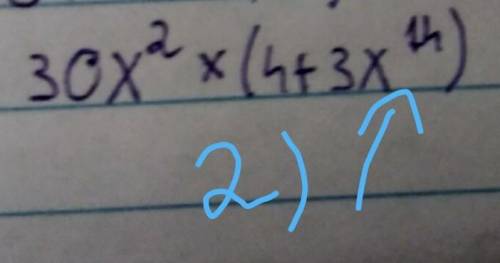 30x² × (4+3x¹⁴)
2) ↑